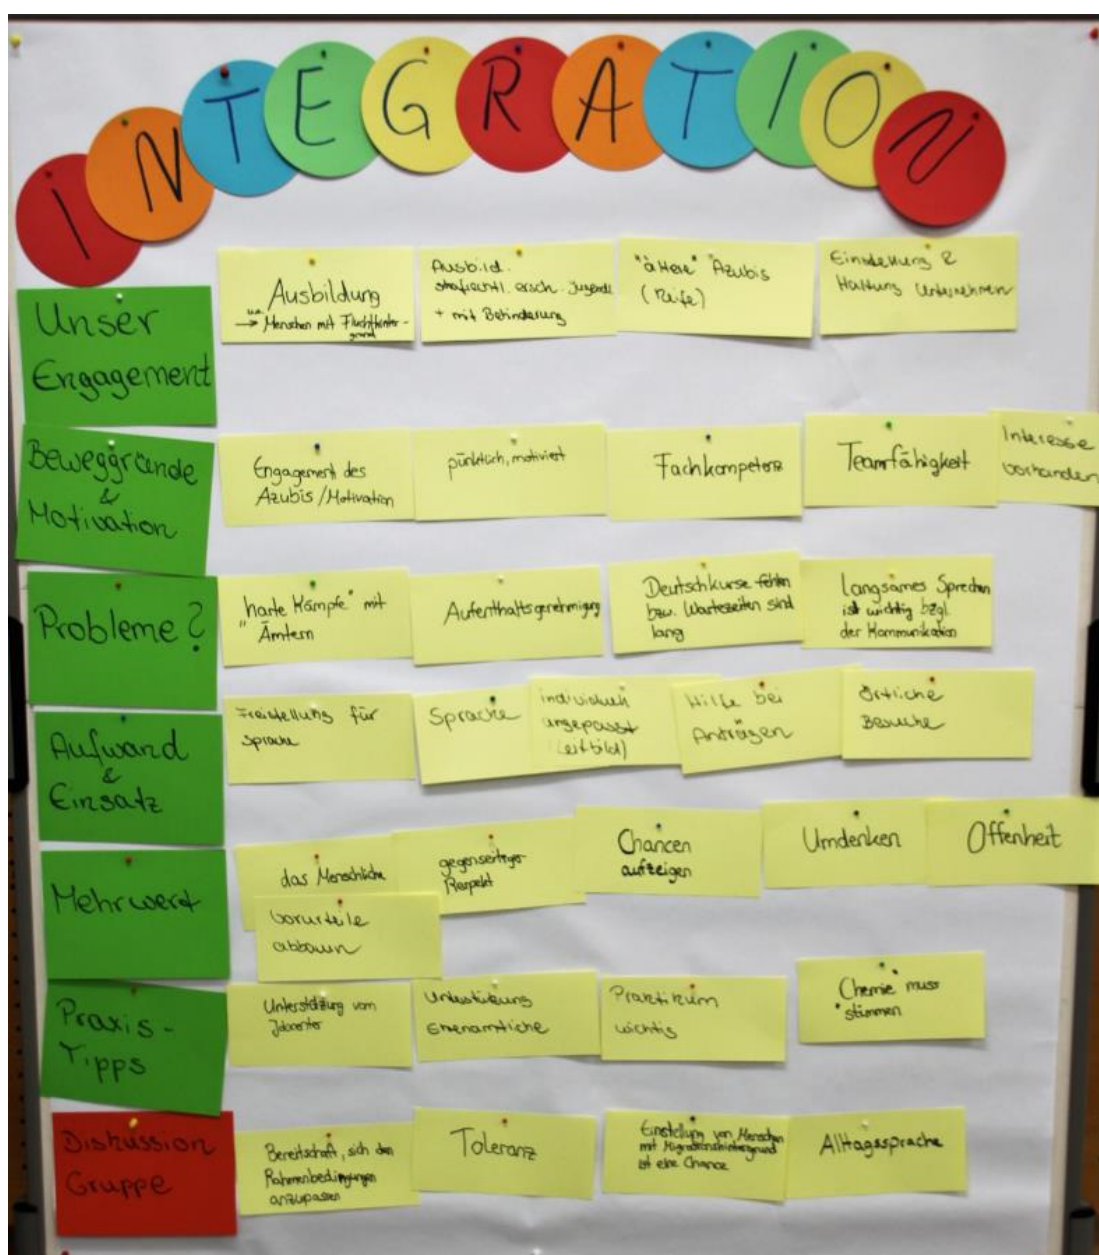 INTEGRATION
Unser
Engagement
Ausbildung
u.a.
→ Menschen mit Fluchthinter-
grund
Ausbild.
strafrechtl. ersch. Jugendl.
+ mit Behinderung
"ältere" Azubis
(Reife)
Einstellung &
Haltung Unternehmen
Beweggründe
&
Motivation
Engagement des
Azubis/Motivation
pünktlich, motiviert
Fachkompetenz
Teamfähigkeit
Interesse
vorhanden
Probleme?
"harte Kämpfe" mit
Ämtern
Aufenthaltsgenehmigung
Deutschkurse fehlen
bzw. Wartezeiten sind
lang
langsames Sprechen
ist wichtig bzgl.
der Kommunikation
Aufwand
&
Einsatz
Freistellung für
Sprache
Sprache
individuell
angepasst
(Leitbild)
Hilfe bei
Anträgen
Örtliche
Besuche
Mehrwert
das Menschliche
gegenseitiger
Respekt
Chancen
aufzeigen
Umdenken
Offenheit
Vorurteile
abbauen
Praxis-
Tipps
Unterstützung vom
Jobcenter
Unterstützung
Ehrenamtliche
Praktikum
wichtig
"Chemie" muss
stimmen
Diskussion
Gruppe
Bereitschaft, sich den
Rahmenbedingungen
anzupassen
Toleranz
Einstellung von Menschen
mit Migrationshintergrund
ist eine Chance
Alltagssprache